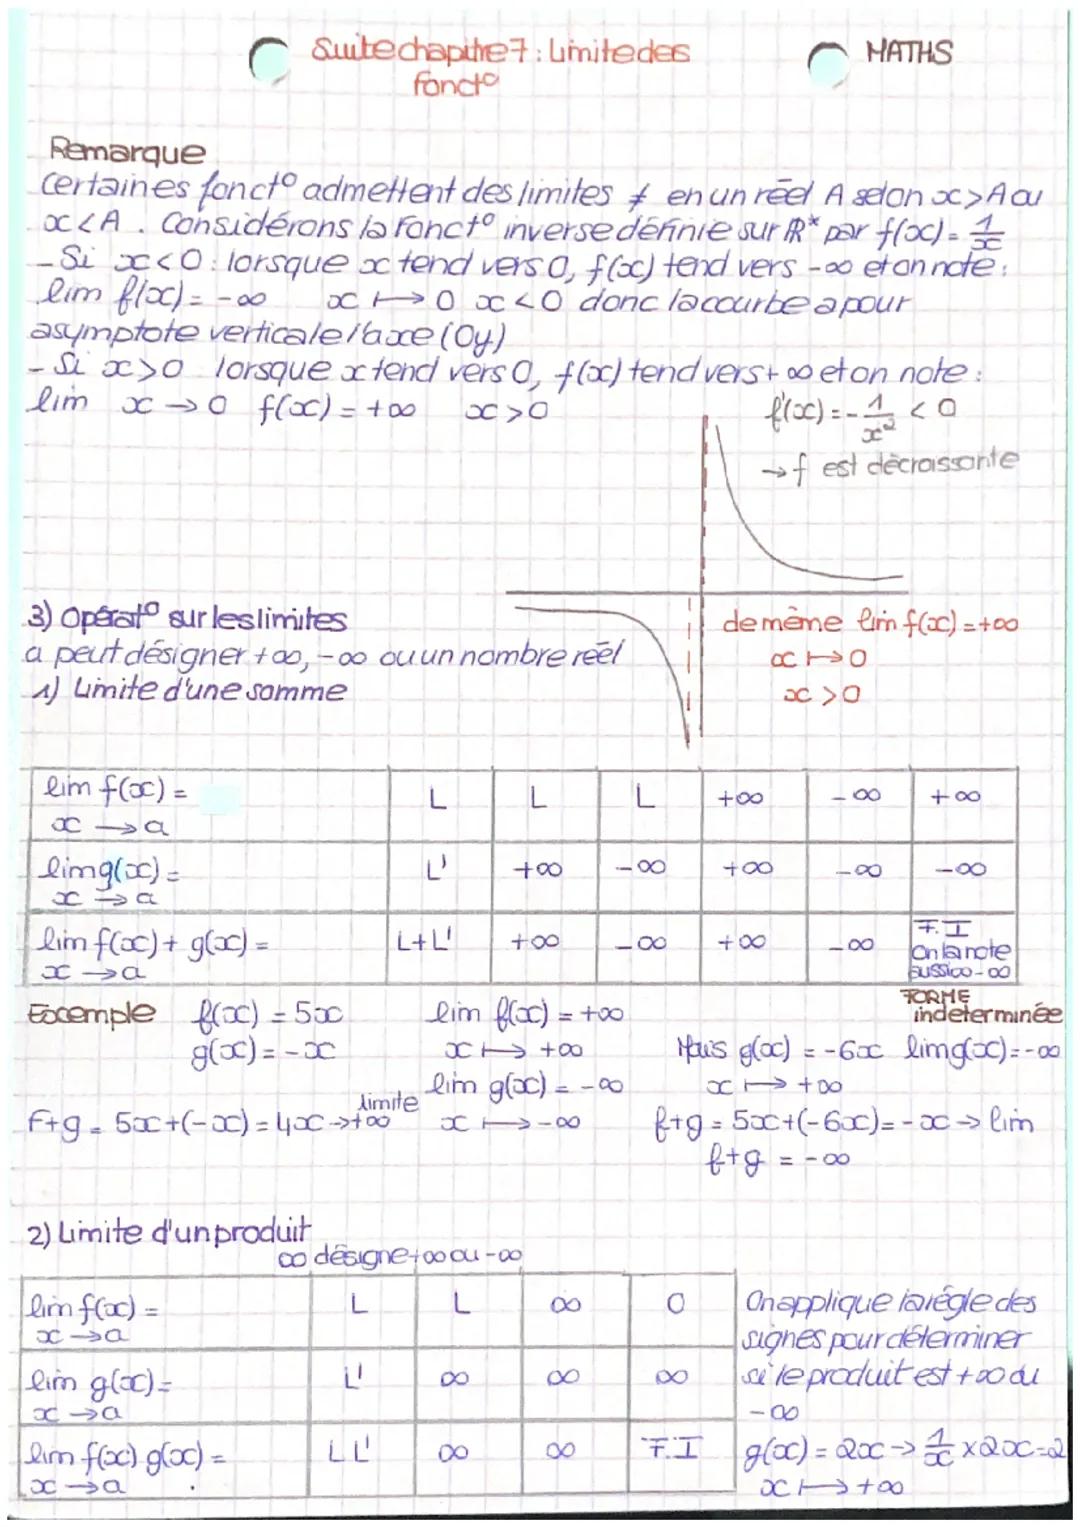 Suite chapitre 7 : Limite des
fonct°
MATHS
Remarque
Certaines fonct° admettent des limites ≠ en un réel A selon x>A ou
x<A. Considérons la fonct° inverse définie sur ℝ* par f(x) = 1/x
- Si x<0 : lorsque x tend vers 0, f(x) tend vers -∞ et on note :
lim f(x) = -∞ x ↦ 0 x<0 donc la courbe a pour
asymptote verticale l'axe (Oy)
- Si x>0 lorsque x tend vers 0, f(x) tend vers +∞ et on note :
lim x → 0 f(x) = +∞ x>0
f'(x) = - 1/x² < 0
→ f est décroissante
3) Opérat° sur les limites
a peut désigner +∞, -∞ ou un nombre réel
1) Limite d'une somme
de même lim f(x) = +∞
x ↦ 0
x > 0
lim f(x) = L L L +∞ -∞ +∞
x → a
lim g(x) = L' +∞ -∞ +∞ -∞ -∞
x → a
lim f(x) + g(x) = L+L' +∞ -∞ +∞ -∞ F.I
x → a
On la note
aussi ∞-∞
FORME
indeterminée
Exemple f(x) = 5x lim f(x) = +∞
g(x) = -x x ↦ +∞
Mais g(x) = -6x lim g(x) = -∞
x ↦ +∞
lim g(x) = -∞
x ↦ -∞
limite
f+g = 5x+(-x) = 4x → +∞
f+g = 5x+(-6x) = -x → lim
f+g = -∞
2) Limite d'un produit
∞ désigne +∞ ou -∞
lim f(x) = L L ∞ 0
x → a
lim g(x) = L' ∞ ∞ ∞
x → a
lim f(x) g(x) = LL' ∞ ∞ F.I
x → a
On applique la régle des
signes pour déterminer
si le produit est +∞ ou
-∞
g(x) = 2x → 1/x × 2x = 2
x ↦ +∞